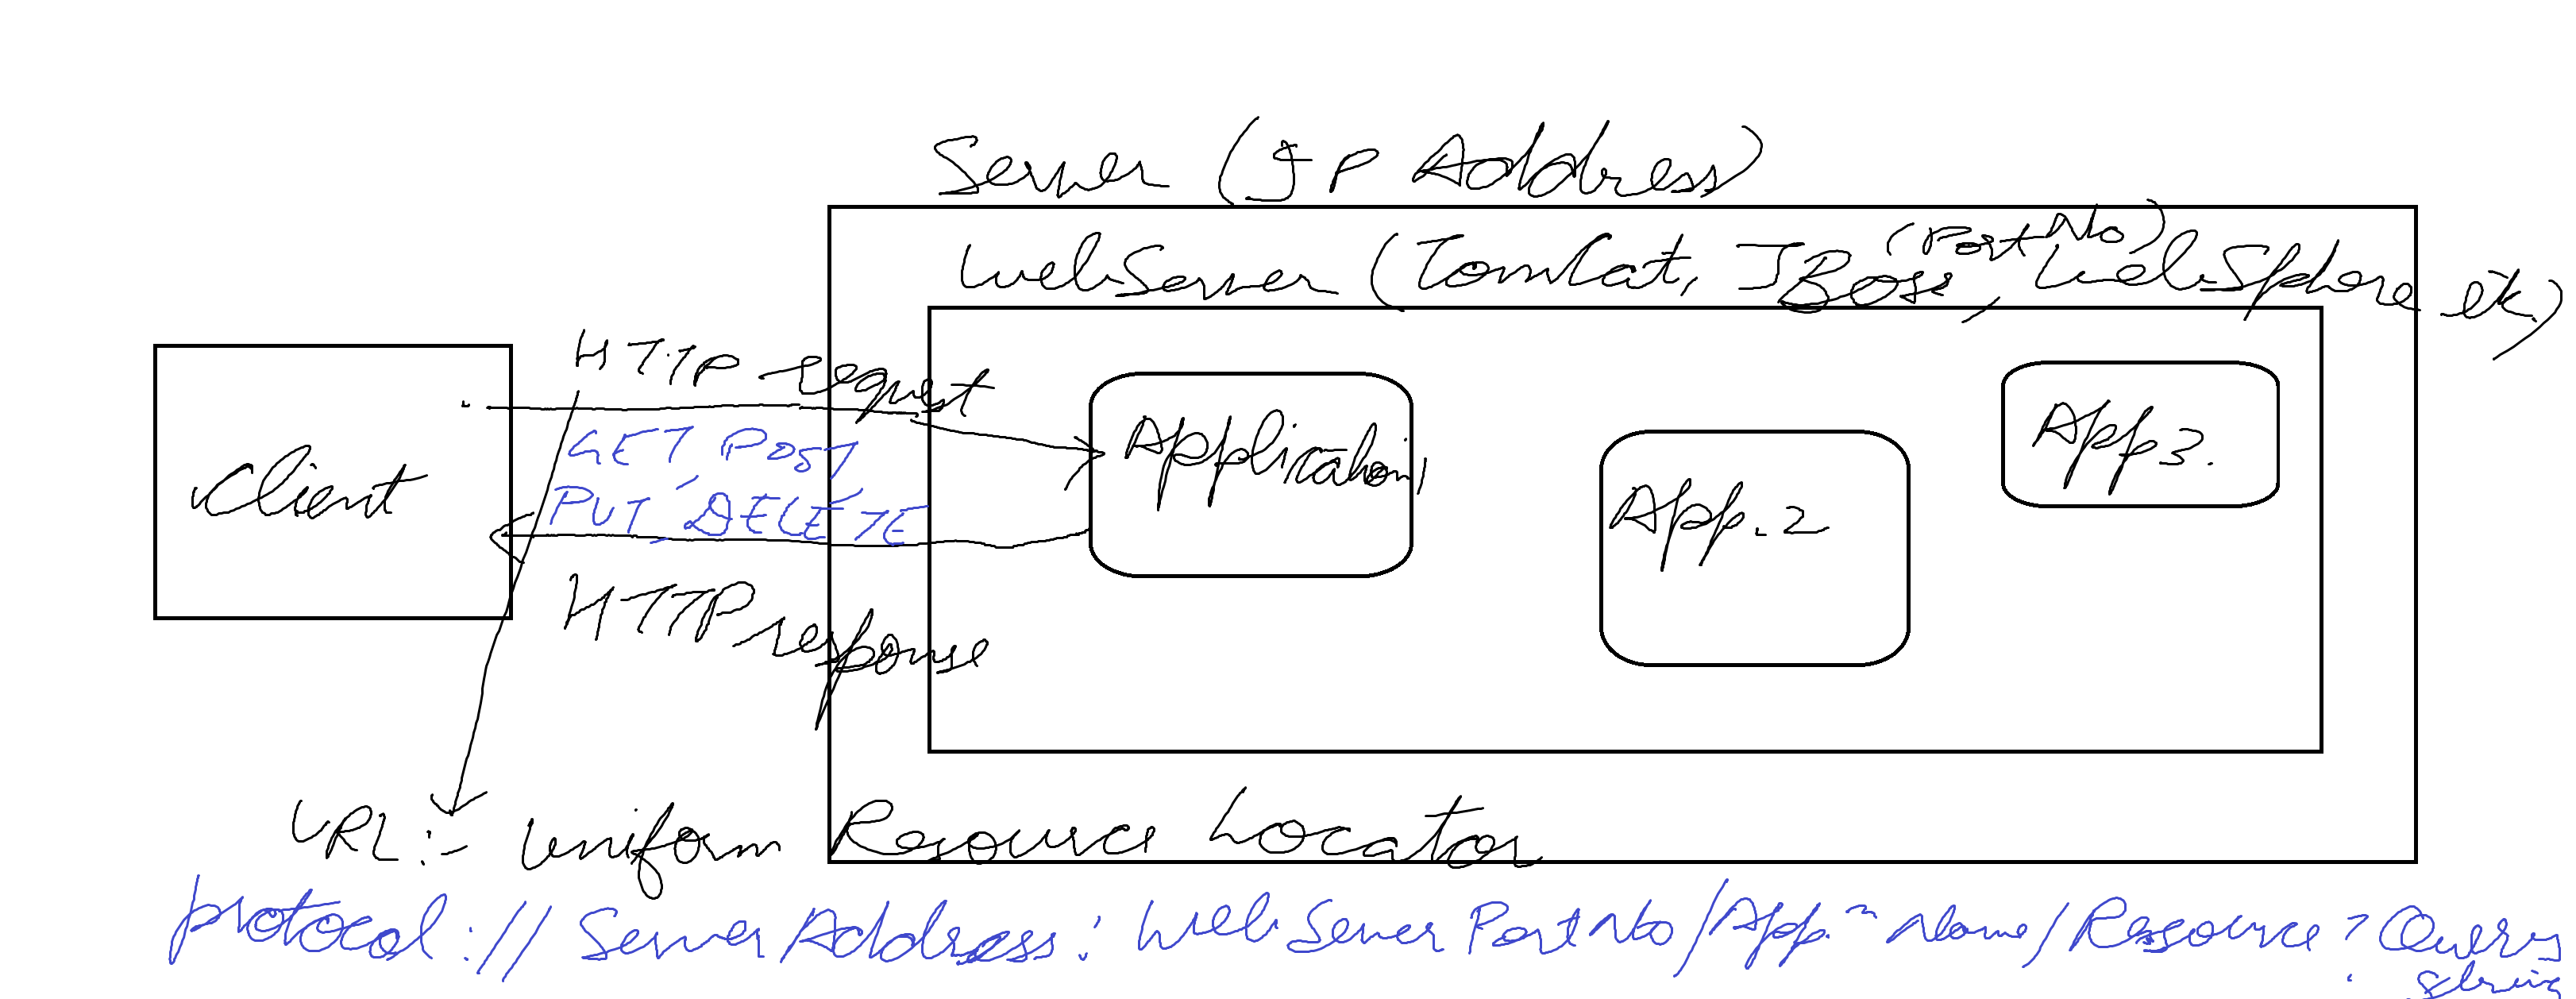 Server (IP Address)
(Port No)
WebServer (TomCat, JBoss, WebSphere etc)
HTTP request
GET, POST,
PUT, DELETE
HTTP response
Client
Application1
App.2
App3.
URL:- Uniform Resource Locator
protocol://ServerAddress:WebServerPortNo/Appn Name/Resource?Query
string